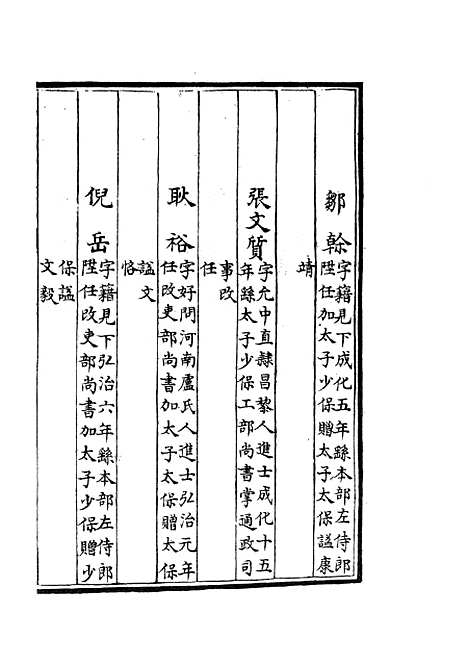 鄒幹字籍見下成化五年繇本部左侍郎
陞任加太子少保贈太子太保諡康
靖
張文質字允中直隸昌黎人進士成化十五
年繇太子少保工部尚書掌通政司
事改
任
耿裕字好問河南盧氏人進士弘治元年
任改吏部尚書加太子太保贈太保
諡文
恪
倪岳字籍見下弘治六年繇本部左侍郎
陞任改吏部尚書加太子少保贈少
保諡
文毅